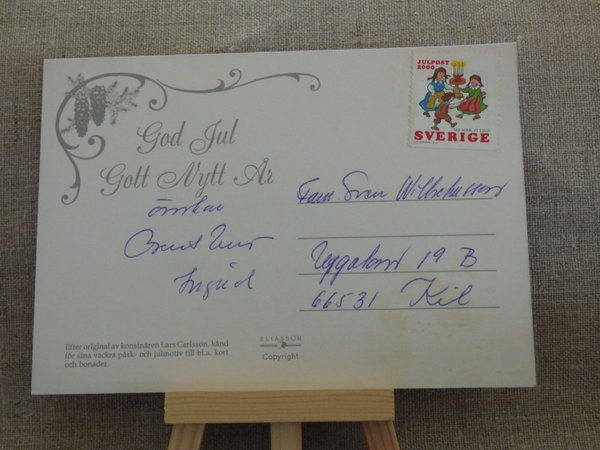 God Jul
Gott Nytt År
önskar
Ingrid
JULPOST
2000
NU HAR VI LJUS
SVERIGE
Fam. Sven Wilhelmsson
19 B
66531 Kil
Efter original av konstnären Lars Carlsson, känd
för sina vackra påsk- och julmotiv till bl.a. kort
och bonader.
ELIASSON
Copyright